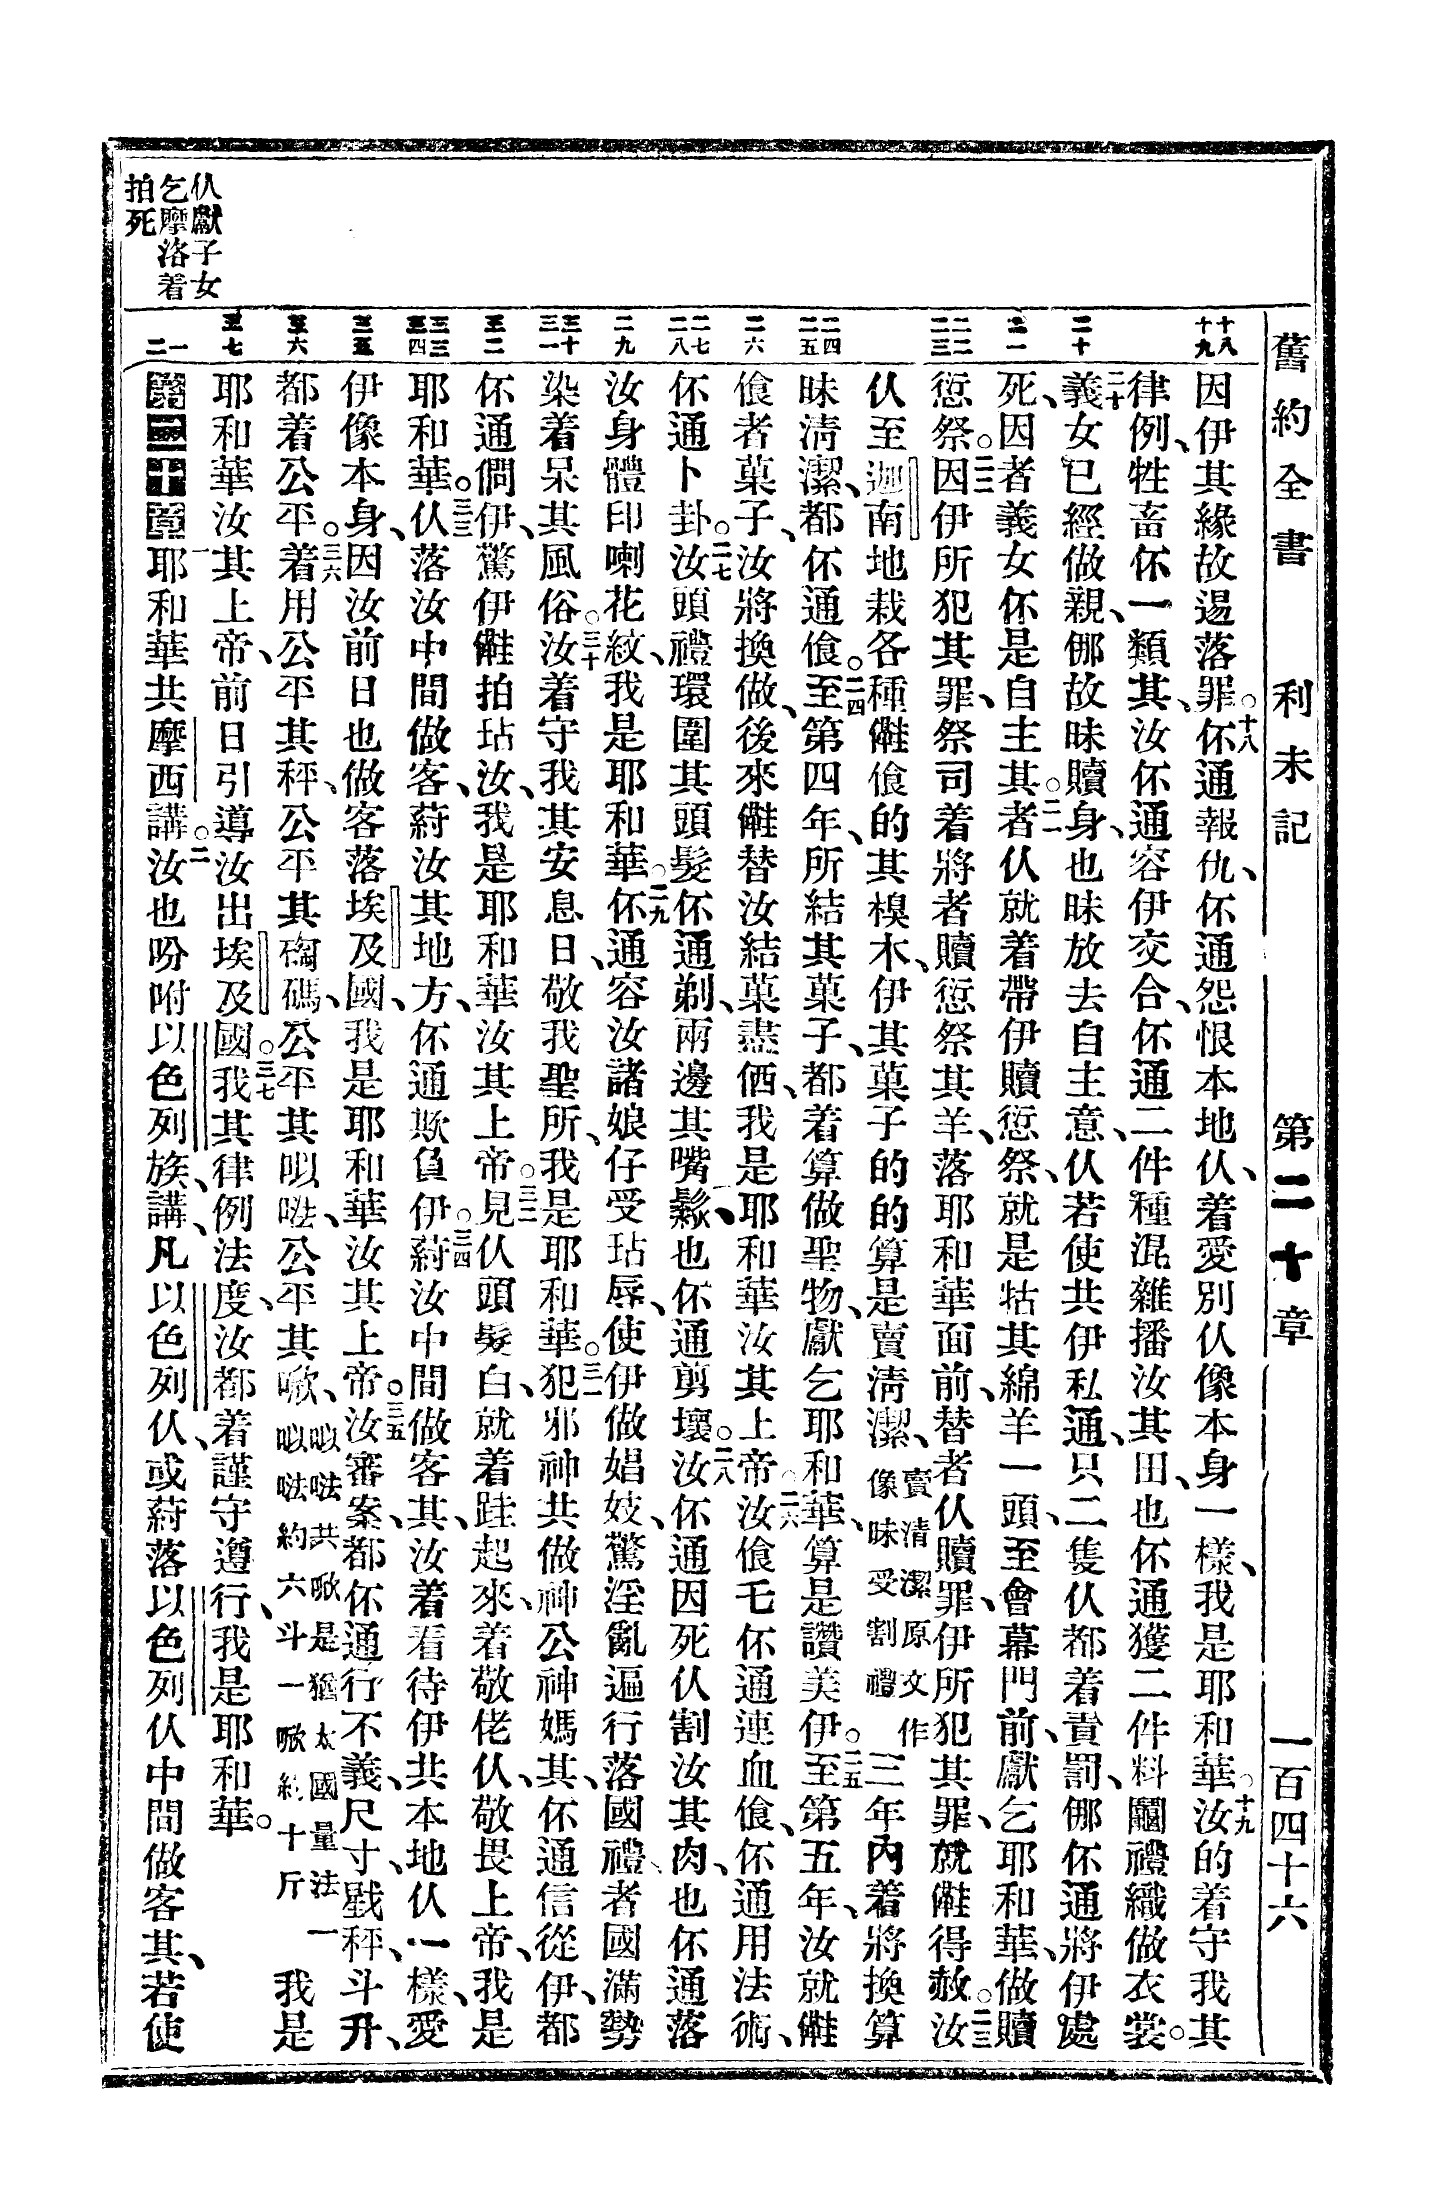 舊約全書 利未記 第二十章 一百四十六
因伊其緣故逿落罪。十八伓通報仇、伓通怨恨本地仈、着愛別仈像本身一樣、我是耶和華。十九汝的着守我其
律例、牲畜伓一類其、汝伓通容伊交合、伓通二件種混雜播汝其田、也伓通獲二件料𦆵禮織做衣裳。
二十義女已經做親、㑚故昧贖身、也昧放去自主意、仈若使共伊私通、只二隻仈都着責罰、㑚伓通將伊處
死、因者義女伓是自主其。二一者仈就着帶伊贖愆祭、就是牯其綿羊一頭、至會幕門前、獻乞耶和華、做贖
愆祭。二二因伊所犯其罪、祭司着將者贖愆祭其羊、落耶和華面前、替者仈贖罪、伊所犯其罪、就𠍲得赦。二三汝
仈至迦南地栽各種𠍲飡的其樹木、伊其菓子的的算是賣淸潔、賣清潔原文作像昧受割禮三年內着將換算
昧淸潔、都伓通飡。二四至第四年、所結其菓子、都着算做聖物、獻乞耶和華、算是讚美伊。二五至第五年、汝就𠍲
飡者菓子、汝將換做、後來𠍲替汝結菓盡価、我是耶和華汝其上帝。二六汝飡乇伓通連血飡、伓通用法術、
伓通卜卦。二七汝頭禮環圍其頭髮伓通剃、兩邊其嘴鬚、也伓通剪壞。二八汝伓通因死仈割汝其肉、也伓通落
汝身體印喇花紋、我是耶和華。二九伓通容汝諸娘仔受玷辱、使伊做娼妓、驚淫亂遍行落國禮、者國滿勢
染着呆其風俗。三十汝着守我其安息日、敬我聖所、我是耶和華。三一犯邪神共做神公神媽其、伓通信從伊、都
伓通僩伊、驚伊𠍲拍玷汝、我是耶和華汝其上帝。三二見仈頭髮白、就着跬起來、着敬佬仈、敬畏上帝、我是
耶和華。三三仈落汝中間做客、蒔汝其地方、伓通欺負伊。三四蒔汝中間做客其、汝着看待伊共本地仈一樣、愛
伊像本身、因汝前日也做客落埃及國、我是耶和華汝其上帝。三五汝審案、都伓通行不義、尺寸、戥秤、斗升、
都着公平。三六着用公平其秤、公平其碼、公平其㕥㗐、公平其㗵、㕥㗐共㗵是猶太國量法一㕥㗐約六斗一㗵約十斤我是
耶和華汝其上帝、前日引導汝出埃及國。三七我其律例法度、汝都着謹守遵行、我是耶和華。
第二十章 一耶和華共摩西講。二汝也吩咐以色列族、講、凡以色列仈、或蒔落以色列仈中間做客其、若使
仈獻子女
乞摩洛着
拍死
十八 十九 二十 二一 二二 二三 二四 二五 二六 二七 二八 二九 三十 三一 三二 三三 三四 三五 三六 三七 一 二